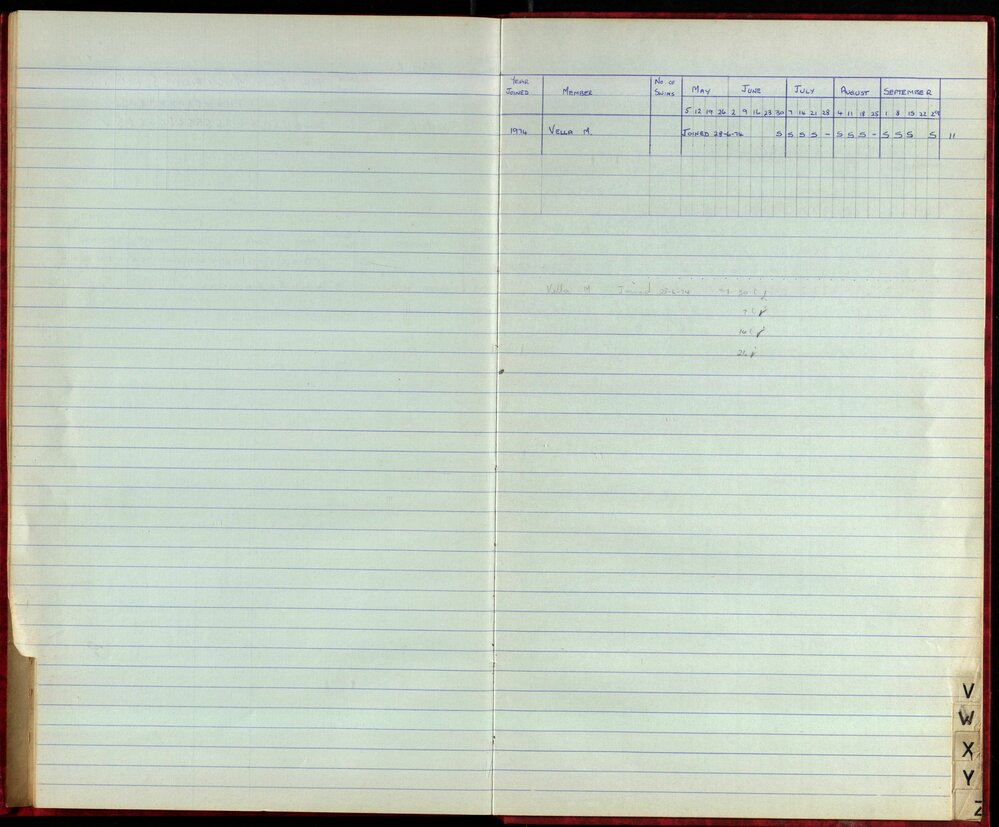 YEAR JOINED MEMBER No. OF SWIMS MAY JUNE JULY AUGUST SEPTEMBER
5 12 19 26 2 9 16 23 30 7 14 21 28 4 11 18 25 1 8 15 22 29
1974 VELLA M. JOINED 28-6-74 S S S S - S S S - S S S S 11
Vella M Joined 28-6-74 30
7
14
21
V
W
X
Y
Z